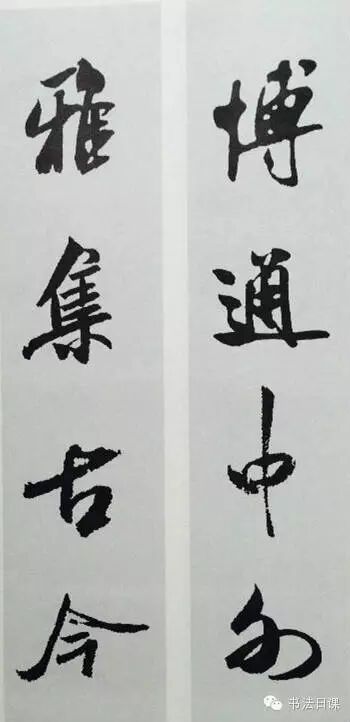 博通中外
雅集古今
书法日课